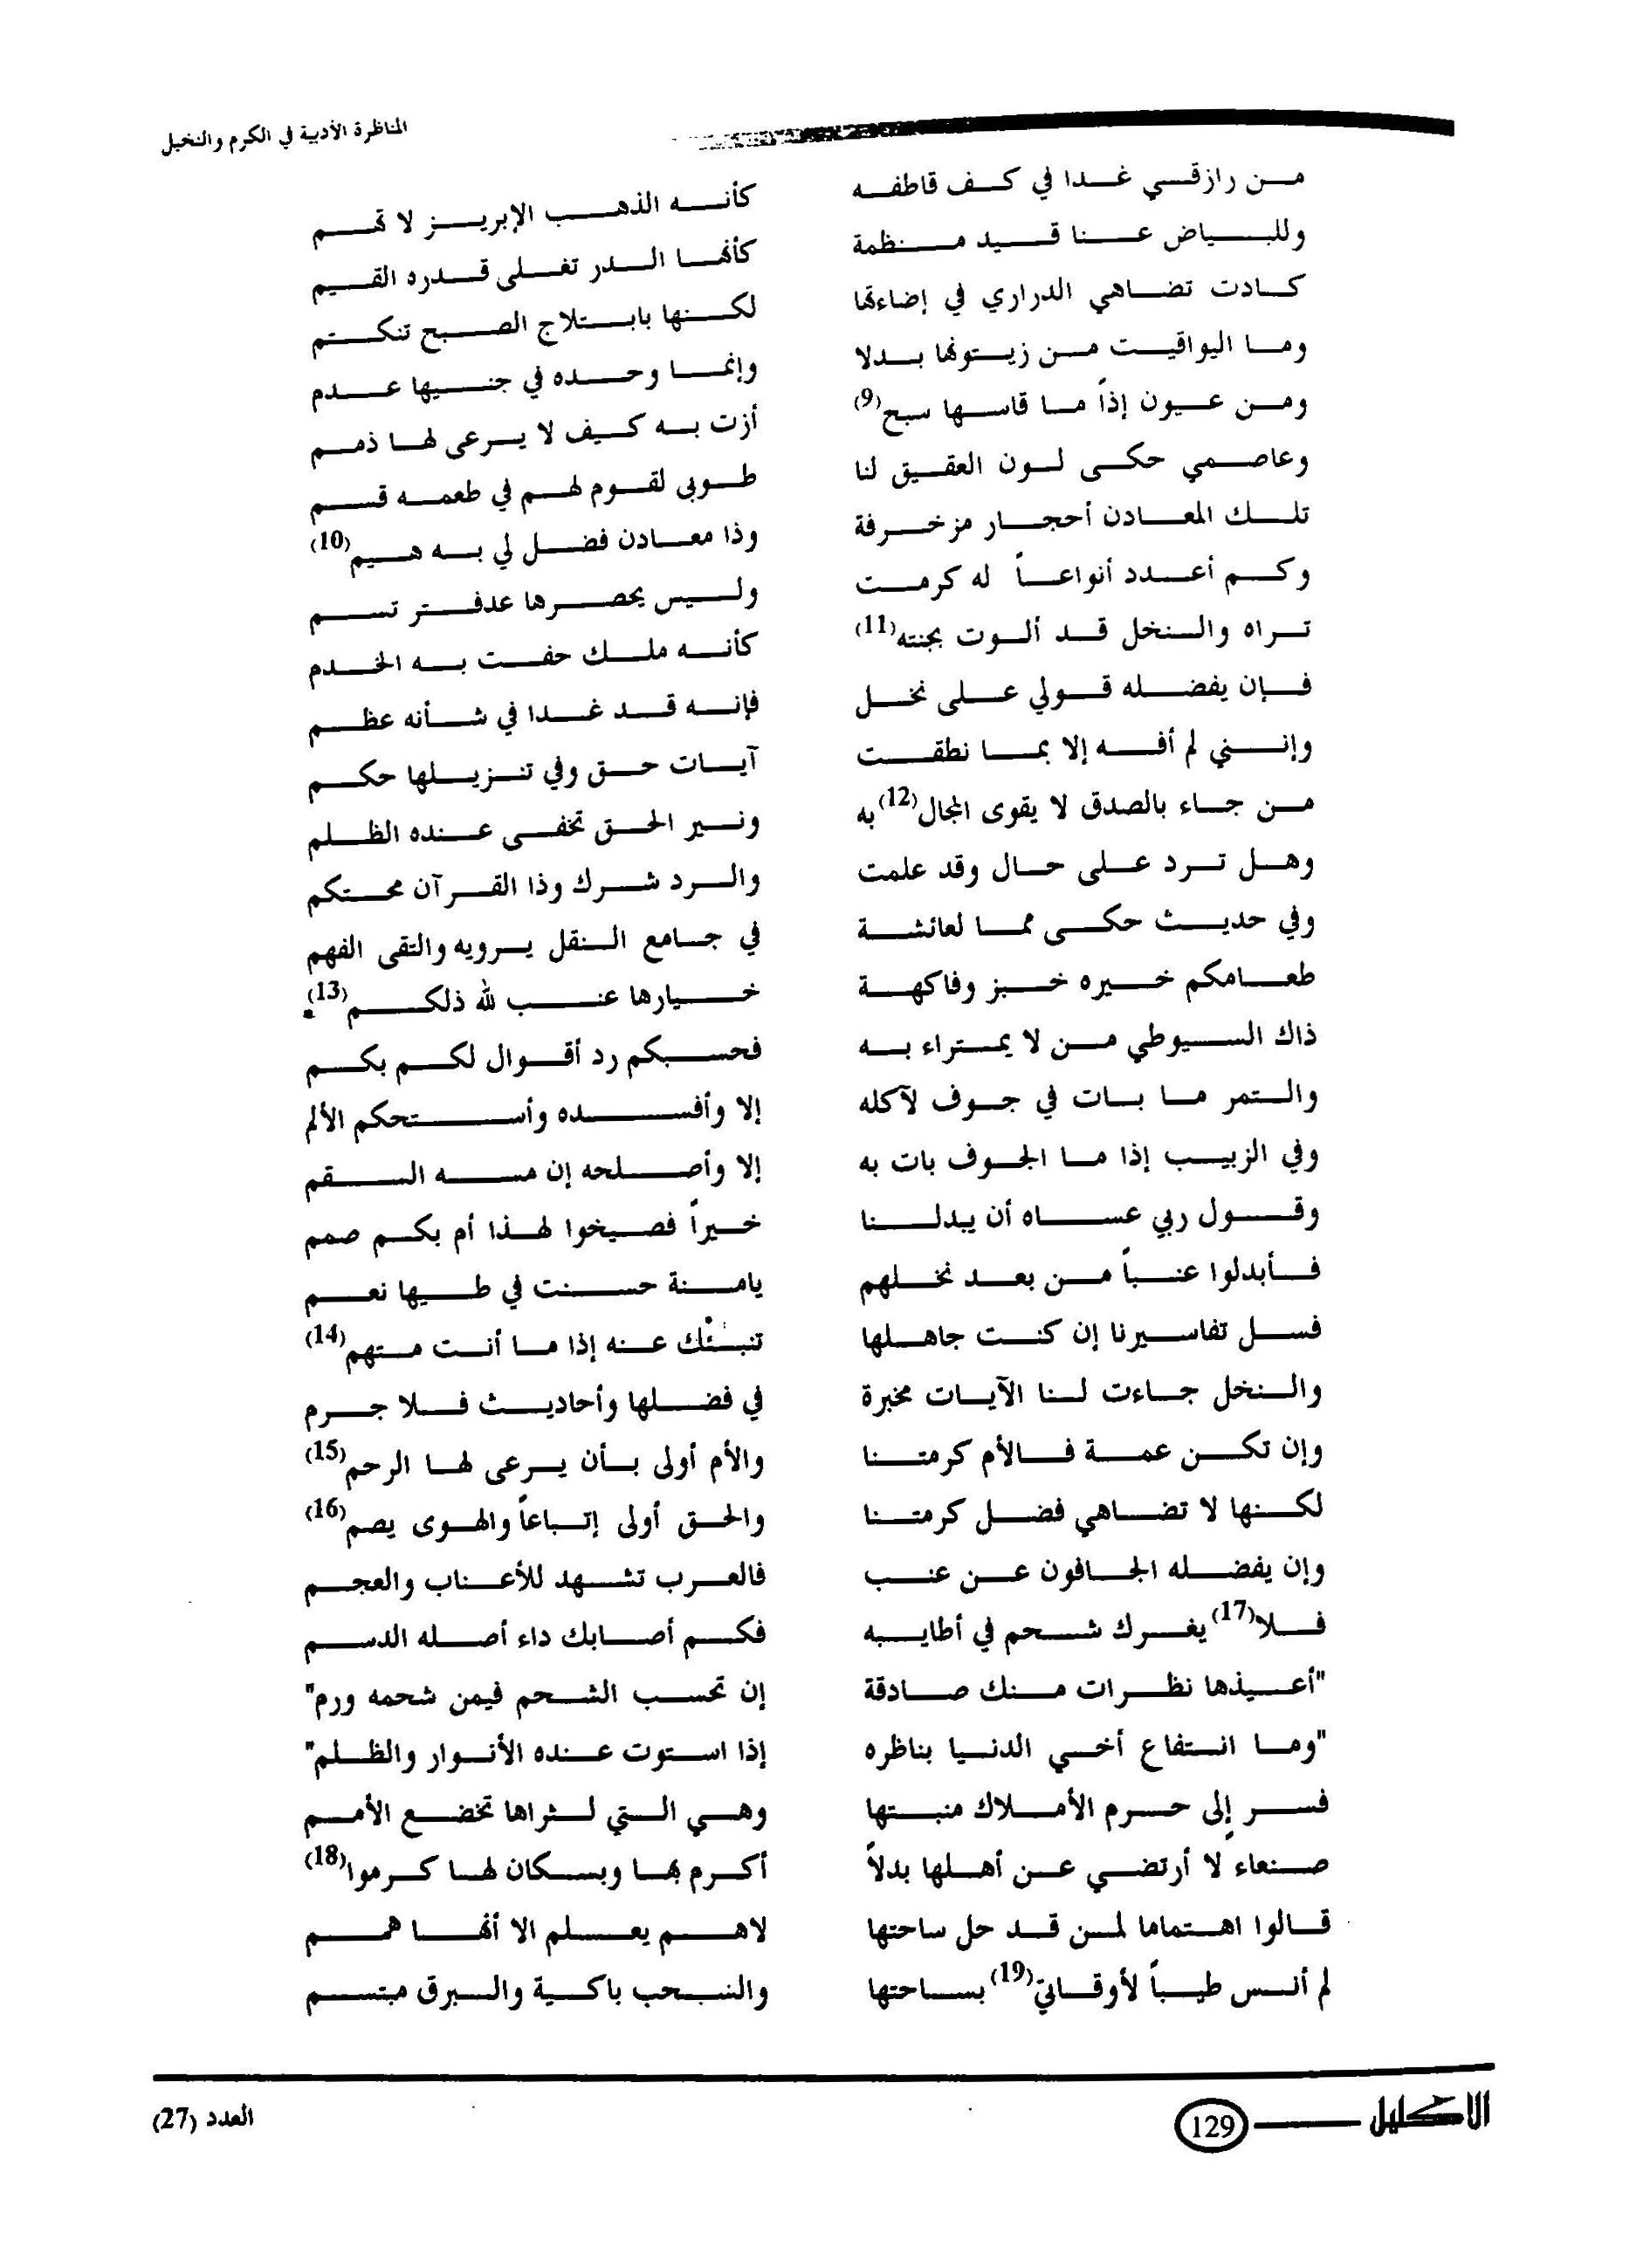 المناظرة الأدبية في الكرم والنخيل
من رازقي غدا في كف قاطفه كأنه الذهب الإبريز لا تهم
وللبياض عنا قيد منظمة كأنها الدر تغلى قدره القيم
كادت تضاهي الدراري في إضاءتها لكنها بابتلاج الصبح تنكتم
وما اليواقيت من زيتونها بدلا وإنما وحده في جنبيها عدم
ومن عيون إذاً ما قاسها سبح(9) أزت به كيف لا يرعى لها ذمم
وعاصمي حكى لون العقيق لنا طوبى لقوم لهم في طعمه قسم
تلك المعادن أحجار مزخرفة وذا معادن فضل لي به هيم(10)
وكم أعدد أنواعاً له كرمت وليس يحصرها عدفتر تسم
تراه والنخل قد ألوت بجنته(11) كأنه ملك حفت به الخدم
فإن يفضله قولي على نخل فإنه قد غدا في شأنه عظم
وإنني لم أفه إلا بما نطقت آيات حق وفي تنزيلها حكم
من جاء بالصدق لا يقوى المجال(12) به ونير الحق تخفى عنده الظلم
وهل ترد على حال وقد علمت والرد شرك وذا القرآن محتكم
وفي حديث حكى مما لعائشة في جامع النقل يرويه والتقى الفهم
طعامكم خيره خبز وفاكهة خيارها عنب لله ذلكم(13).
ذاك السيوطي من لا يمتراء به فحسبكم رد أقوال لكم بكم
والتمر ما بات في جوف لآكله إلا وأفسده وأستحكم الألم
وفي الزبيب إذا ما الجوف بات به إلا وأصلحه إن مسه السقم
وقول ربي عساه أن يبدلنا خيراً فصيخوا لهذا أم بكم صمم
فأبدلوا عنباً من بعد نخلهم يامنة حسنت في طيها نعم
فسل تفاسيرنا إن كنت جاهلها تنبئك عنه إذا ما أنت متهم(14)
والنخل جاءت لنا الآيات مخبرة في فضلها وأحاديث فلا جرم
وإن تكن عمة فالأم كرمتنا والأم أولى بأن يرعى لها الرحم(15)
لكنها لا تضاهي فضل كرمتنا والحق أولى إتباعاً والهوى يصم(16)
وإن يفضله الجافون عن عنب فالعرب تشهد للأعناب والعجم
فلا(17) يغرك شحم في أطايبه فكم أصابك داء أصله الدسم
"أعيذها نظرات منك صادقة إن تحسب الشحم فيمن شحمه ورم"
"وما انتفاع أخي الدنيا بناظره إذا استوت عنده الأنوار والظلم"
فسر إلى حرم الأملاك منبتها وهي التي لثراها تخضع الأمم
صنعاء لا أرتضي عن أهلها بدلاً أكرم بها وبسكان لها كرموا(18)
قالوا اهتماما لمن قد حل ساحتها لاهم يعلم الا أنها همم
لم أنس طيباً لأوقاتي(19) بساحتها والسحب باكية والبرق مبتسم
الاكليل 129 العدد (27)